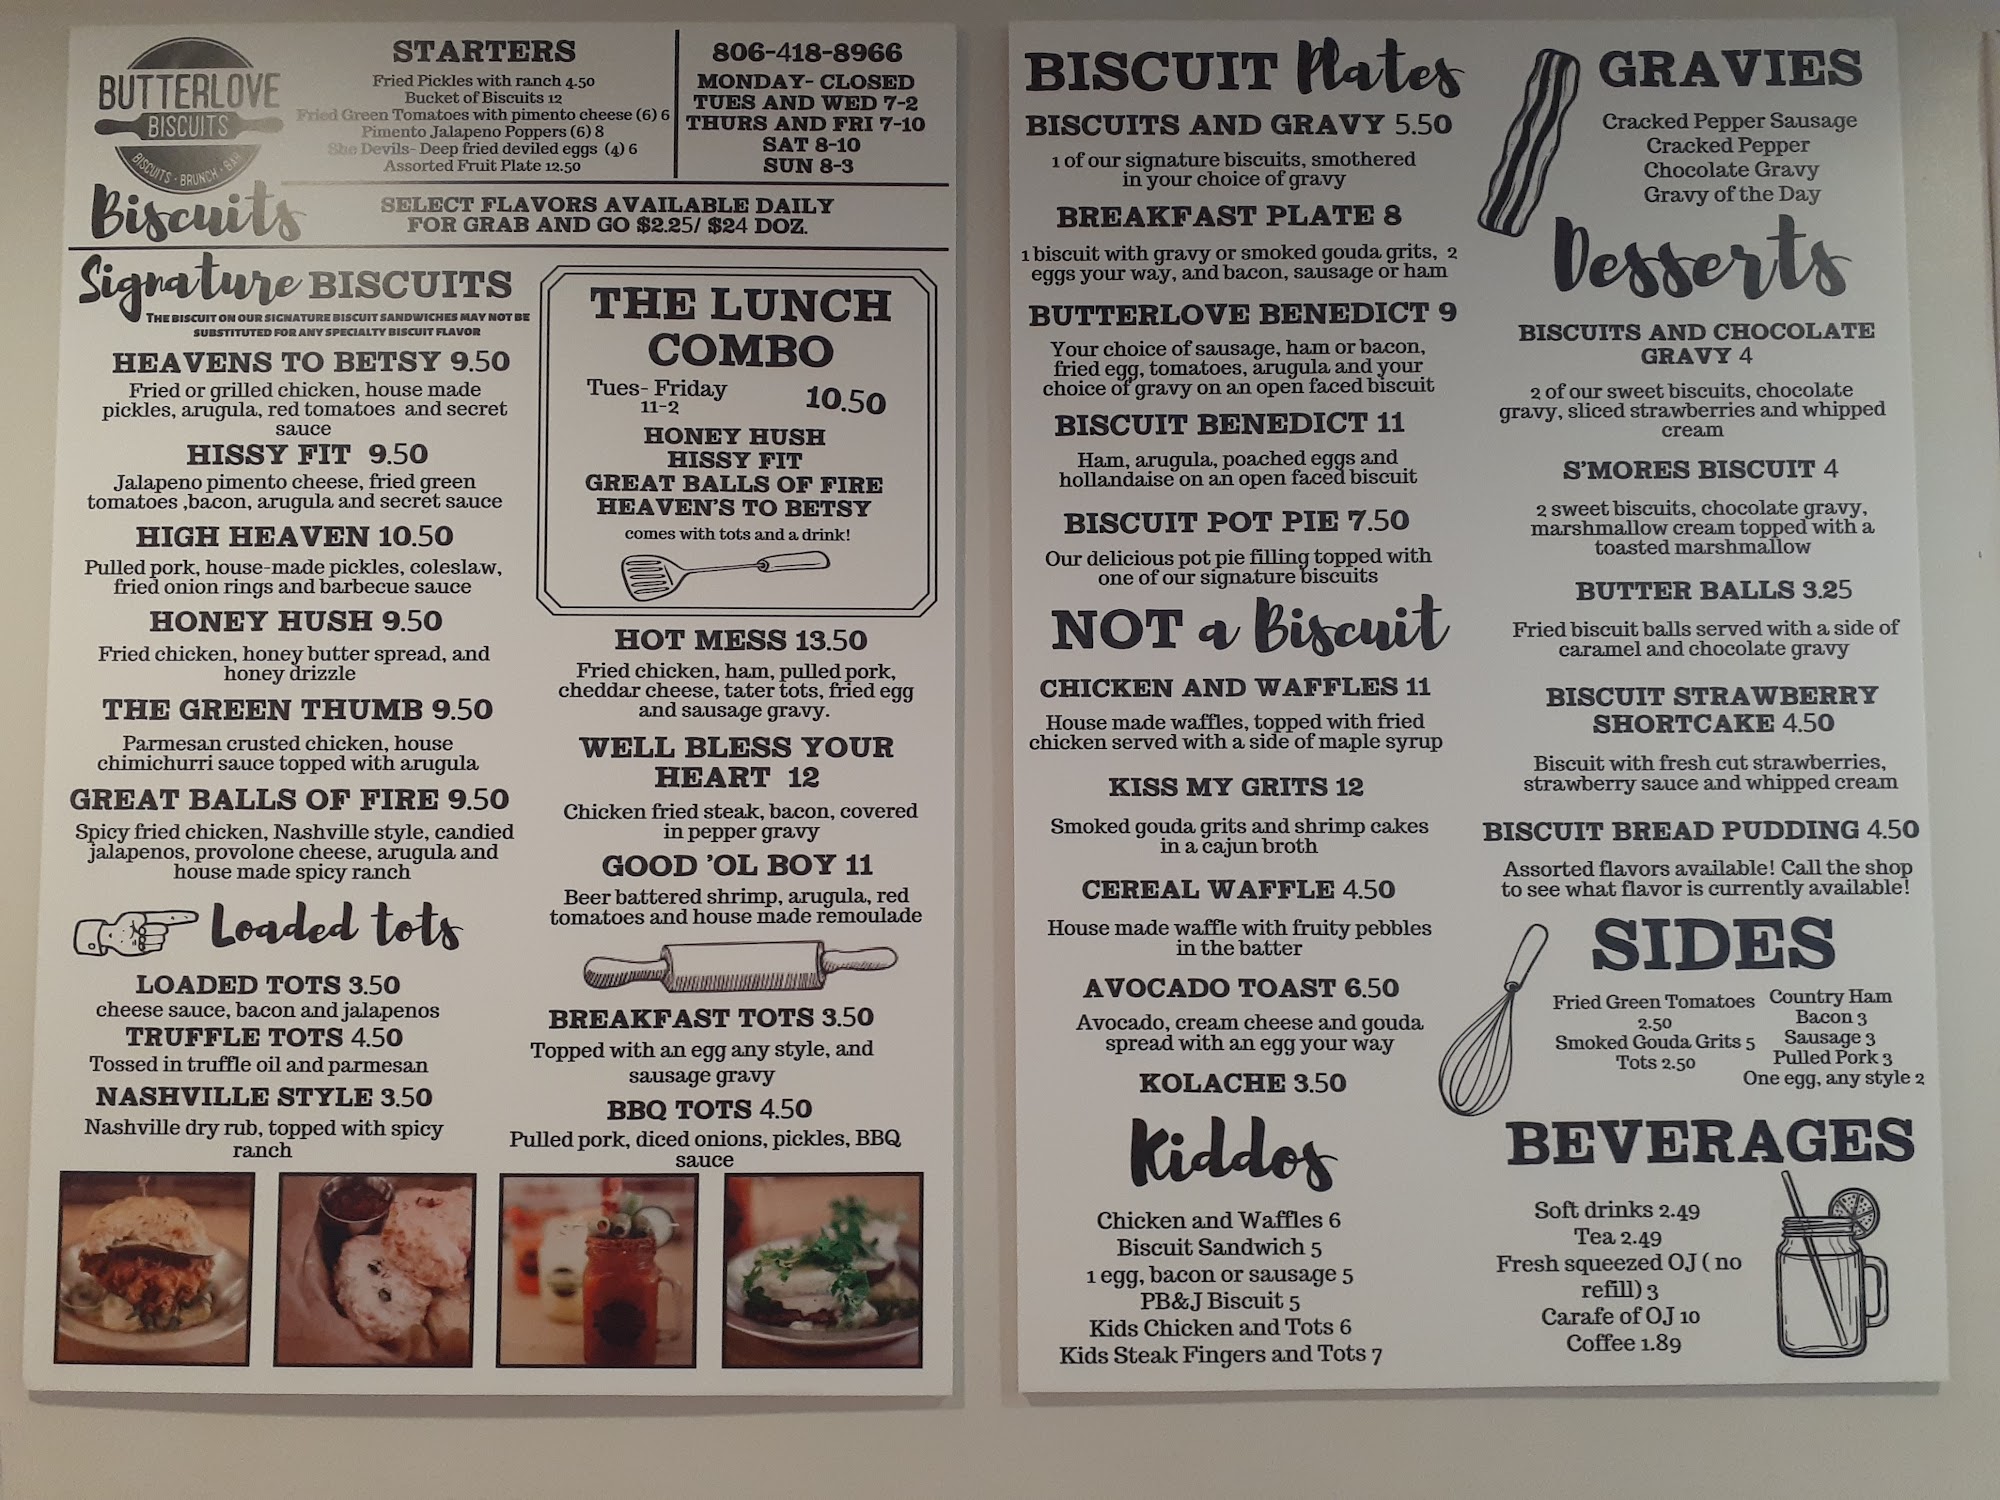 BUTTERLOVE
BISCUITS
BISCUITS · BRUNCH · BAR
STARTERS
Fried Pickles with ranch 4.50
Bucket of Biscuits 12
Fried Green Tomatoes with pimento cheese (6) 6
Pimento Jalapeno Poppers (6) 8
She Devils- Deep fried deviled eggs (4) 6
Assorted Fruit Plate 12.50
806-418-8966
MONDAY- CLOSED
TUES AND WED 7-2
THURS AND FRI 7-10
SAT 8-10
SUN 8-3
Biscuits
SELECT FLAVORS AVAILABLE DAILY
FOR GRAB AND GO $2.25/ $24 DOZ.
Signature BISCUITS
THE BISCUIT ON OUR SIGNATURE BISCUIT SANDWICHES MAY NOT BE
SUBSTITUTED FOR ANY SPECIALTY BISCUIT FLAVOR
HEAVENS TO BETSY 9.50
Fried or grilled chicken, house made
pickles, arugula, red tomatoes and secret
sauce
HISSY FIT 9.50
Jalapeno pimento cheese, fried green
tomatoes ,bacon, arugula and secret sauce
HIGH HEAVEN 10.50
Pulled pork, house-made pickles, coleslaw,
fried onion rings and barbecue sauce
HONEY HUSH 9.50
Fried chicken, honey butter spread, and
honey drizzle
THE GREEN THUMB 9.50
Parmesan crusted chicken, house
chimichurri sauce topped with arugula
GREAT BALLS OF FIRE 9.50
Spicy fried chicken, Nashville style, candied
jalapenos, provolone cheese, arugula and
house made spicy ranch
THE LUNCH
COMBO
Tues- Friday
11-2
10.50
HONEY HUSH
HISSY FIT
GREAT BALLS OF FIRE
HEAVEN'S TO BETSY
comes with tots and a drink!
HOT MESS 13.50
Fried chicken, ham, pulled pork,
cheddar cheese, tater tots, fried egg
and sausage gravy.
WELL BLESS YOUR
HEART 12
Chicken fried steak, bacon, covered
in pepper gravy
GOOD 'OL BOY 11
Beer battered shrimp, arugula, red
tomatoes and house made remoulade
Loaded tots
LOADED TOTS 3.50
cheese sauce, bacon and jalapenos
TRUFFLE TOTS 4.50
Tossed in truffle oil and parmesan
NASHVILLE STYLE 3.50
Nashville dry rub, topped with spicy
ranch
BREAKFAST TOTS 3.50
Topped with an egg any style, and
sausage gravy
BBQ TOTS 4.50
Pulled pork, diced onions, pickles, BBQ
sauce
BISCUIT Plates
BISCUITS AND GRAVY 5.50
1 of our signature biscuits, smothered
in your choice of gravy
BREAKFAST PLATE 8
1 biscuit with gravy or smoked gouda grits, 2
eggs your way, and bacon, sausage or ham
BUTTERLOVE BENEDICT 9
Your choice of sausage, ham or bacon,
fried egg, tomatoes, arugula and your
choice of gravy on an open faced biscuit
BISCUIT BENEDICT 11
Ham, arugula, poached eggs and
hollandaise on an open faced biscuit
BISCUIT POT PIE 7.50
Our delicious pot pie filling topped with
one of our signature biscuits
NOT a Biscuit
CHICKEN AND WAFFLES 11
House made waffles, topped with fried
chicken served with a side of maple syrup
KISS MY GRITS 12
Smoked gouda grits and shrimp cakes
in a cajun broth
CEREAL WAFFLE 4.50
House made waffle with fruity pebbles
in the batter
AVOCADO TOAST 6.50
Avocado, cream cheese and gouda
spread with an egg your way
KOLACHE 3.50
Kiddos
Chicken and Waffles 6
Biscuit Sandwich 5
1 egg, bacon or sausage 5
PB&J Biscuit 5
Kids Chicken and Tots 6
Kids Steak Fingers and Tots 7
GRAVIES
Cracked Pepper Sausage
Cracked Pepper
Chocolate Gravy
Gravy of the Day
Desserts
BISCUITS AND CHOCOLATE
GRAVY 4
2 of our sweet biscuits, chocolate
gravy, sliced strawberries and whipped
cream
S'MORES BISCUIT 4
2 sweet biscuits, chocolate gravy,
marshmallow cream topped with a
toasted marshmallow
BUTTER BALLS 3.25
Fried biscuit balls served with a side of
caramel and chocolate gravy
BISCUIT STRAWBERRY
SHORTCAKE 4.50
Biscuit with fresh cut strawberries,
strawberry sauce and whipped cream
BISCUIT BREAD PUDDING 4.50
Assorted flavors available! Call the shop
to see what flavor is currently available!
SIDES
Fried Green Tomatoes
2.50
Smoked Gouda Grits 5
Tots 2.50
Country Ham
Bacon 3
Sausage 3
Pulled Pork 3
One egg, any style 2
BEVERAGES
Soft drinks 2.49
Tea 2.49
Fresh squeezed OJ ( no
refill) 3
Carafe of OJ 10
Coffee 1.89